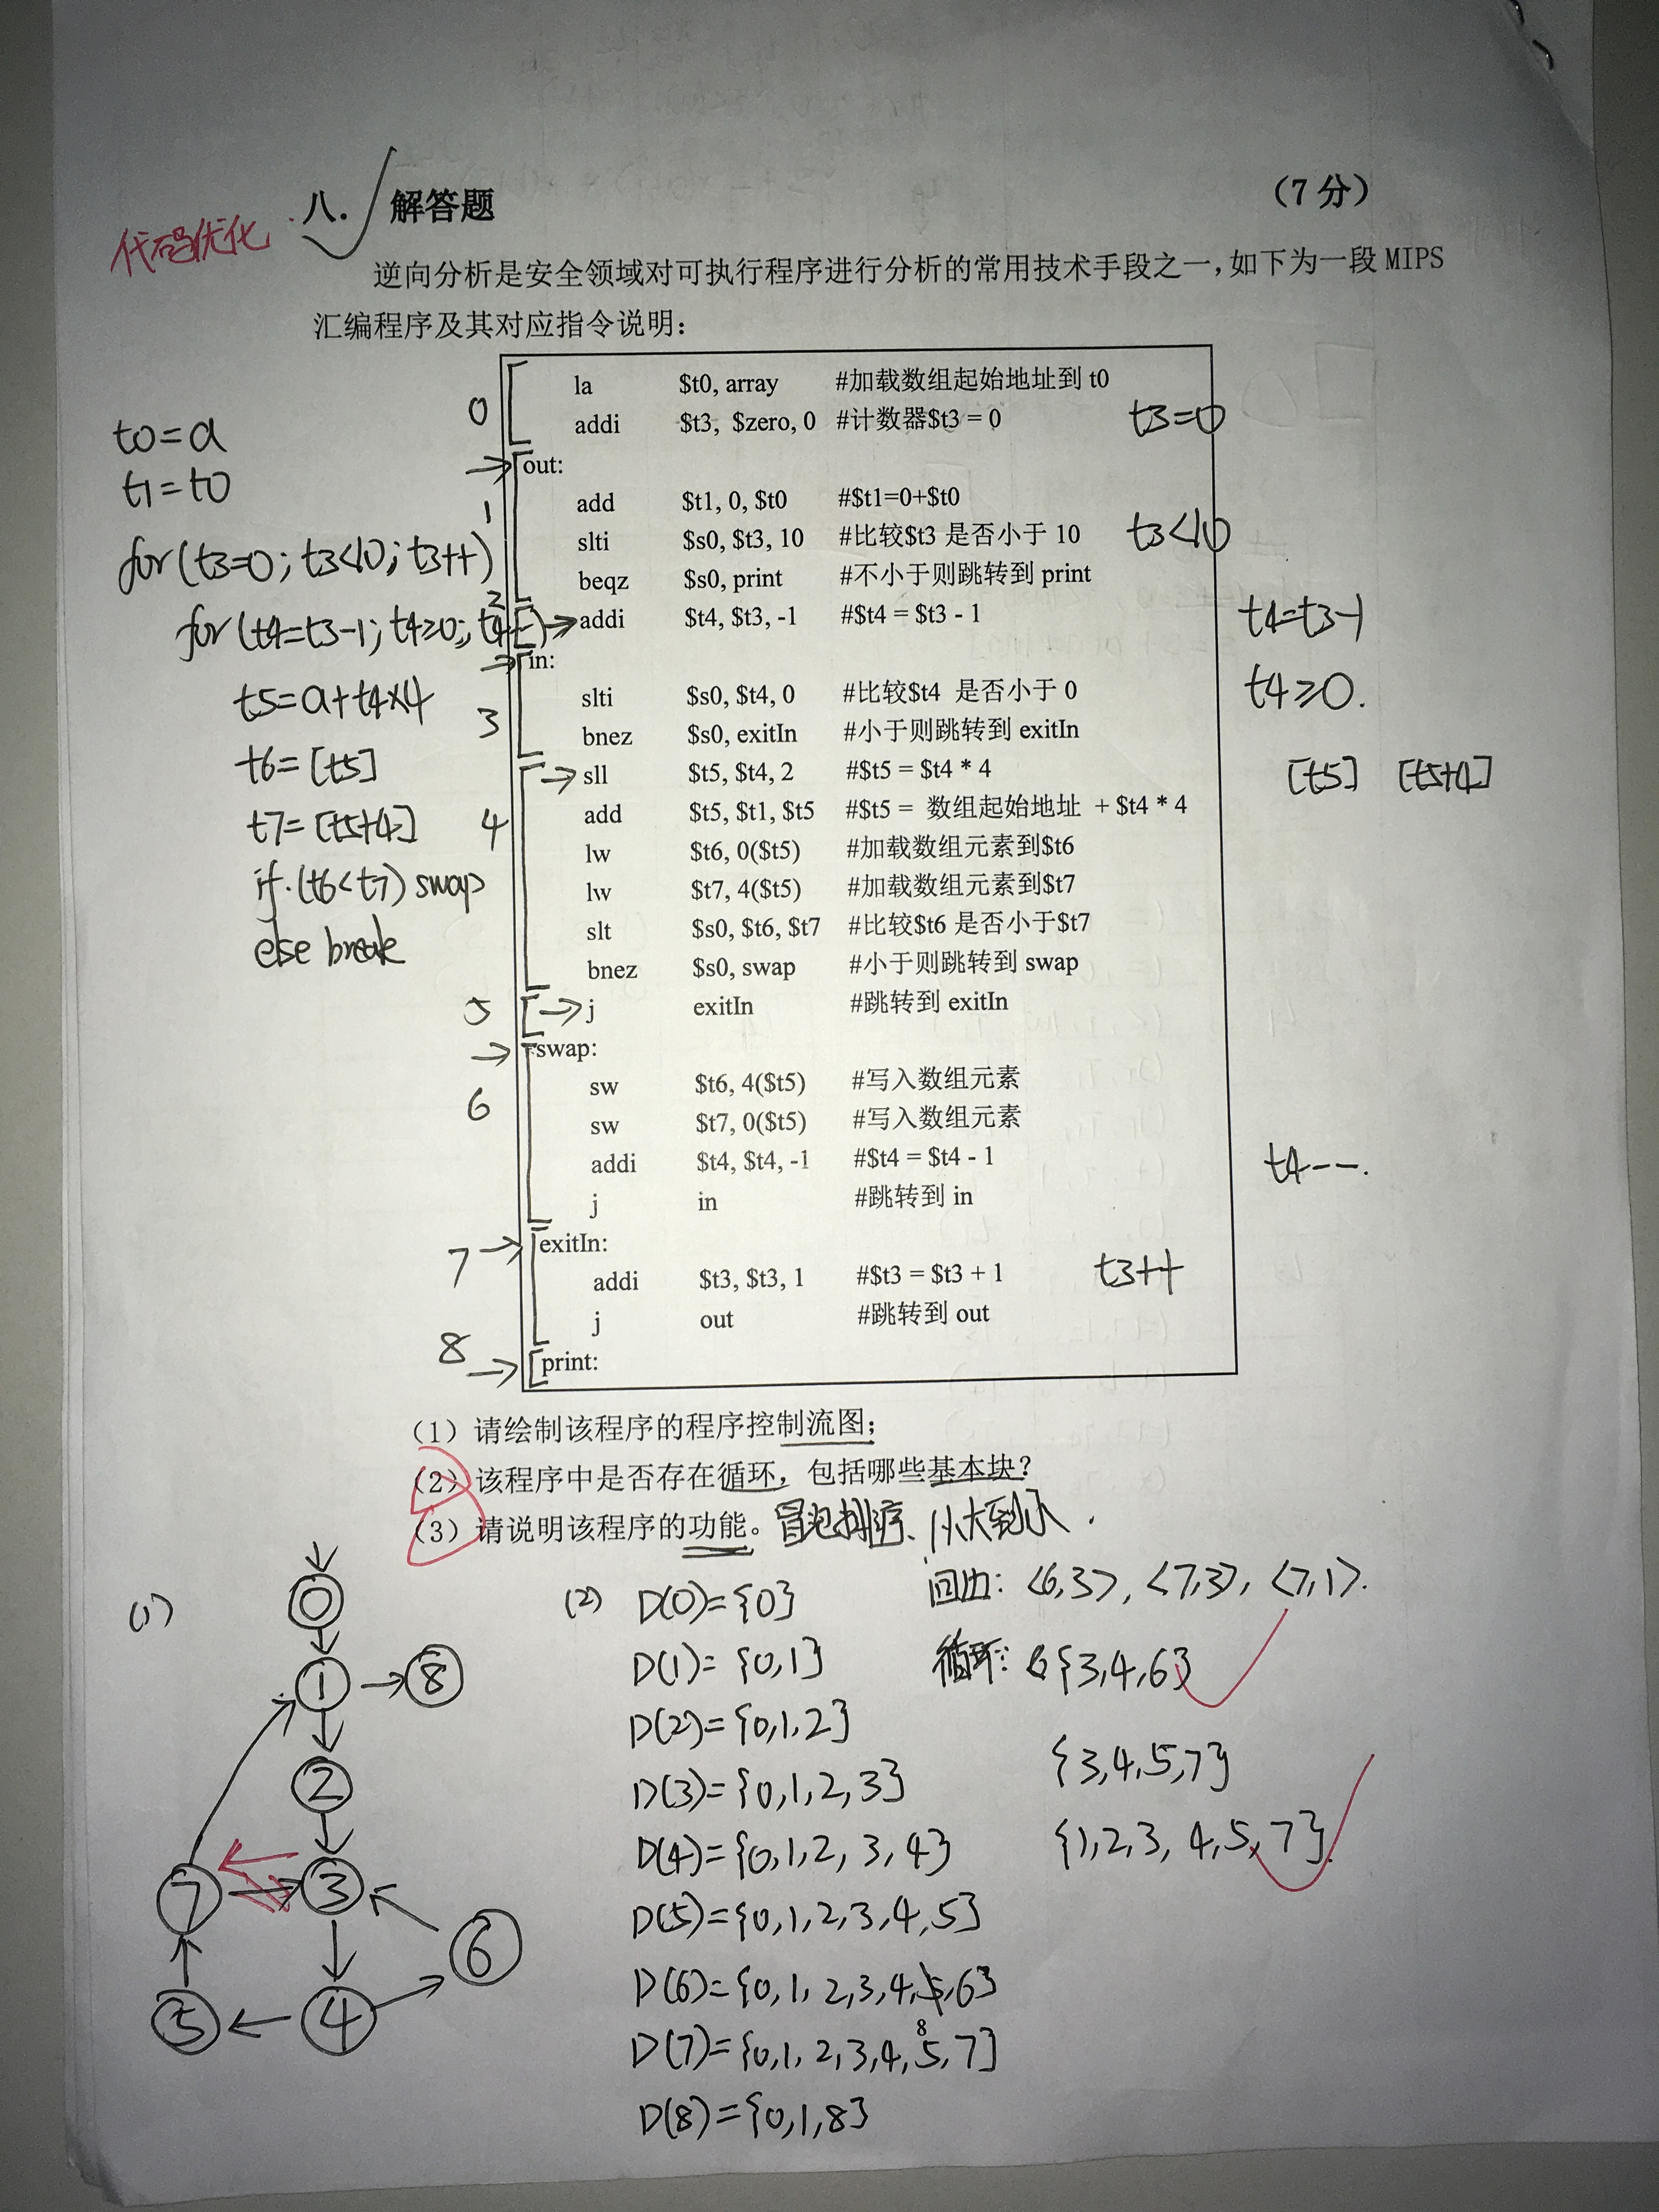 代码优化
八. 解答题 (7 分)
逆向分析是安全领域对可执行程序进行分析的常用技术手段之一,如下为一段 MIPS
汇编程序及其对应指令说明:
0
la $t0, array #加载数组起始地址到 t0
addi $t3, $zero, 0 #计数器$t3 = 0 t3=0
t0=a
t1=t0
for(t3=0; t3<10; t3++)
for(t4=t3-1; t4≥0; t4--)
t5=a+t4×4
t6=[t5]
t7=[t5+4]
if(t6<t7) swap
else break
out:
1
add $t1, 0, $t0 #$t1=0+$t0
slti $s0, $t3, 10 #比较$t3 是否小于 10 t3<10
beqz $s0, print #不小于则跳转到 print
2
addi $t4, $t3, -1 #$t4 = $t3 - 1 t4=t3-1
in:
3
slti $s0, $t4, 0 #比较$t4 是否小于 0 t4≥0.
bnez $s0, exitIn #小于则跳转到 exitIn
4
sll $t5, $t4, 2 #$t5 = $t4 * 4 [t5] [t5+4]
add $t5, $t1, $t5 #$t5 = 数组起始地址 + $t4 * 4
lw $t6, 0($t5) #加载数组元素到$t6
lw $t7, 4($t5) #加载数组元素到$t7
slt $s0, $t6, $t7 #比较$t6 是否小于$t7
bnez $s0, swap #小于则跳转到 swap
5 j exitIn #跳转到 exitIn
swap:
6
sw $t6, 4($t5) #写入数组元素
sw $t7, 0($t5) #写入数组元素
addi $t4, $t4, -1 #$t4 = $t4 - 1 t4--.
j in #跳转到 in
7 exitIn:
addi $t3, $t3, 1 #$t3 = $t3 + 1 t3++
j out #跳转到 out
8 print:
(1) 请绘制该程序的程序控制流图;
(2) 该程序中是否存在循环,包括哪些基本块?
(3) 请说明该程序的功能。冒泡排序、从大到小.
(1)
0
1 8
2
7 3
6
5 4
(2) D(0)={0}
D(1)={0,1}
D(2)={0,1,2}
D(3)={0,1,2,3}
D(4)={0,1,2,3,4}
D(5)={0,1,2,3,4,5}
D(6)={0,1,2,3,4,5,6}
D(7)={0,1,2,3,4,5,7}
D(8)={0,1,8}
回边: <6,3>, <7,3>, <7,1>.
循环: {3,4,6}
{3,4,5,7}
{1,2,3,4,5,7}.
8